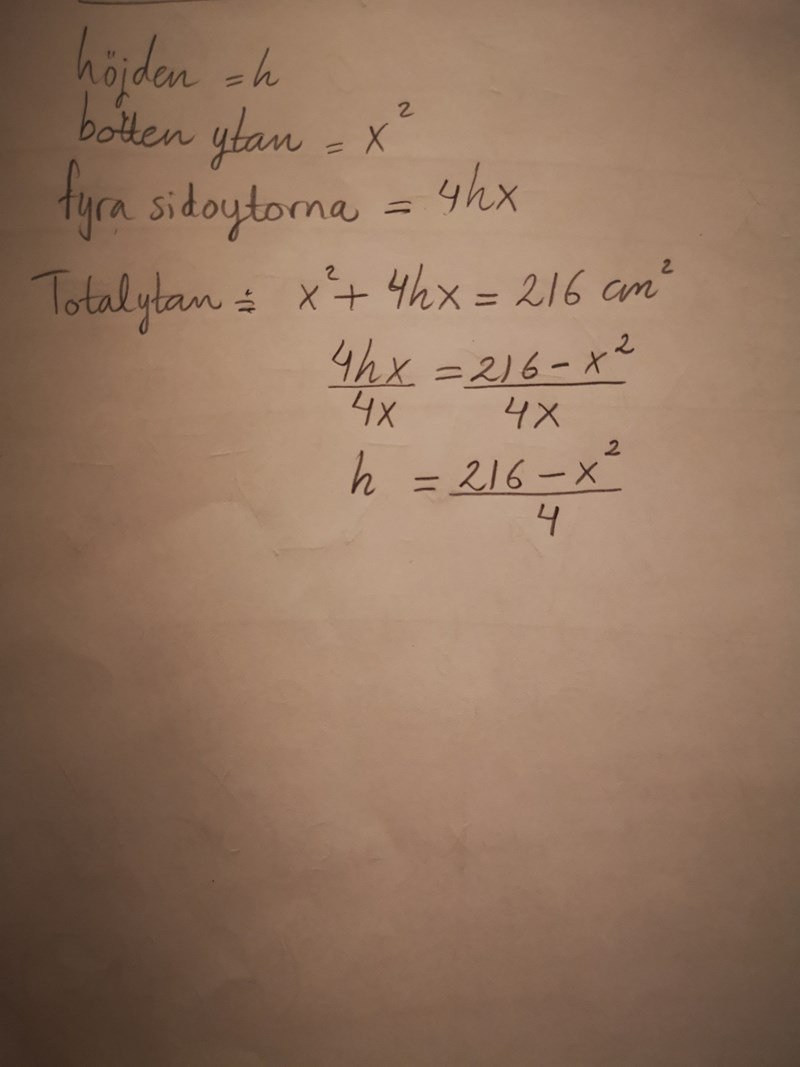 höjden = h
botten ytan = x²
fyra sidoytorna = 4hx
Totalytan = x² + 4hx = 216 cm²
4hx/4x = 216 - x²/4x
h = 216 - x²/4